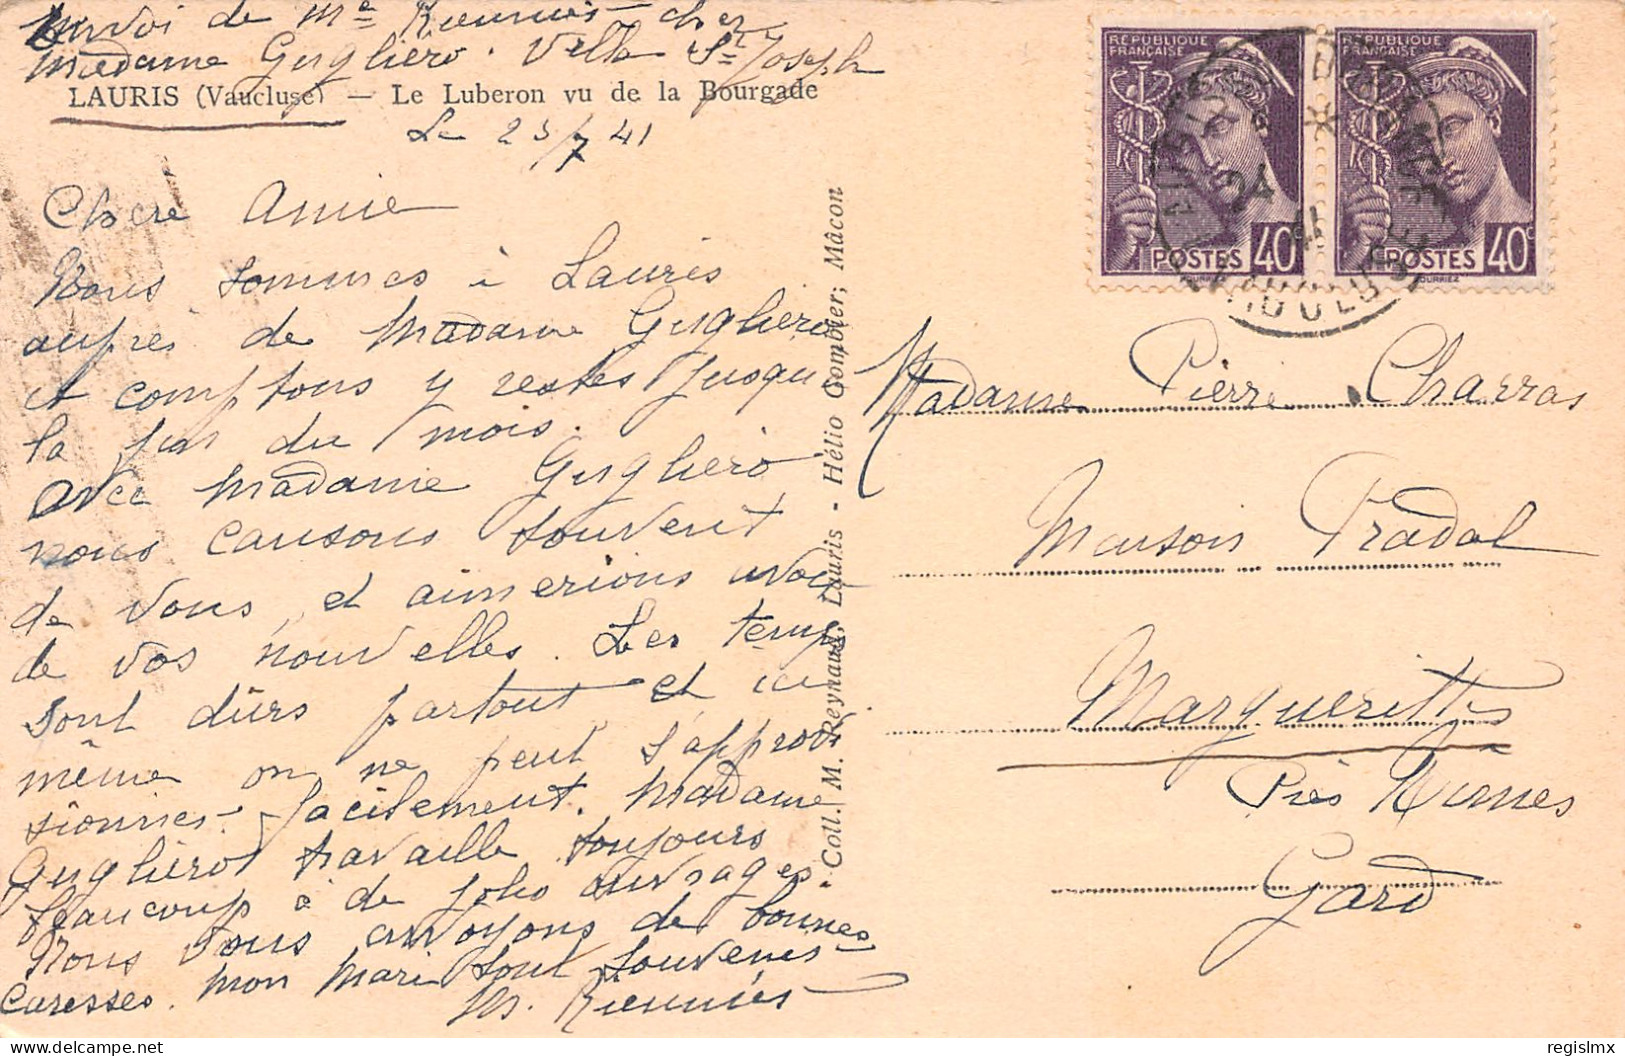 Envoi de Me Rieunier chez
Madame Gugliero. Villa St Joseph
LAURIS (Vaucluse) — Le Luberon vu de la Bourgade
Le 23/7 41
Chère Amie
Nous sommes à Lauris
auprès de Madame Gugliero
et comptons y restes jusqu
la fin du mois.
avec Madame Gugliero
nous causons souvent
de vous, et aimerions avoir
de vos nouvelles. Les temps
sont dûrs partout et ici
même on ne peut s'approvi
sionner facilement. Madame
Gugliero travaille toujours
beaucoup à de jolis ouvrages.
Nous vous envoyons de bonnes
Caresses. mon mari tout souvenirs
M.
Coll. M. Reynaud, Lauris - Hélio Combier, Mâcon
REPUBLIQUE FRANÇAISE
POSTES 40c
REPUBLIQUE FRANÇAISE
POSTES 40c
VAUCLUSE
Madame Pierre Charras
Maison Pradal
Marguerittes
Près Nimes
Gard
regislmx